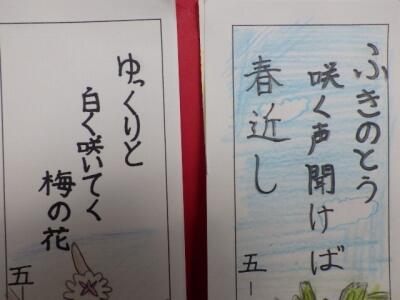 ふきのとう
咲く声聞けば
春近し
五
ゆっくりと
白く咲いてく
梅の花
五